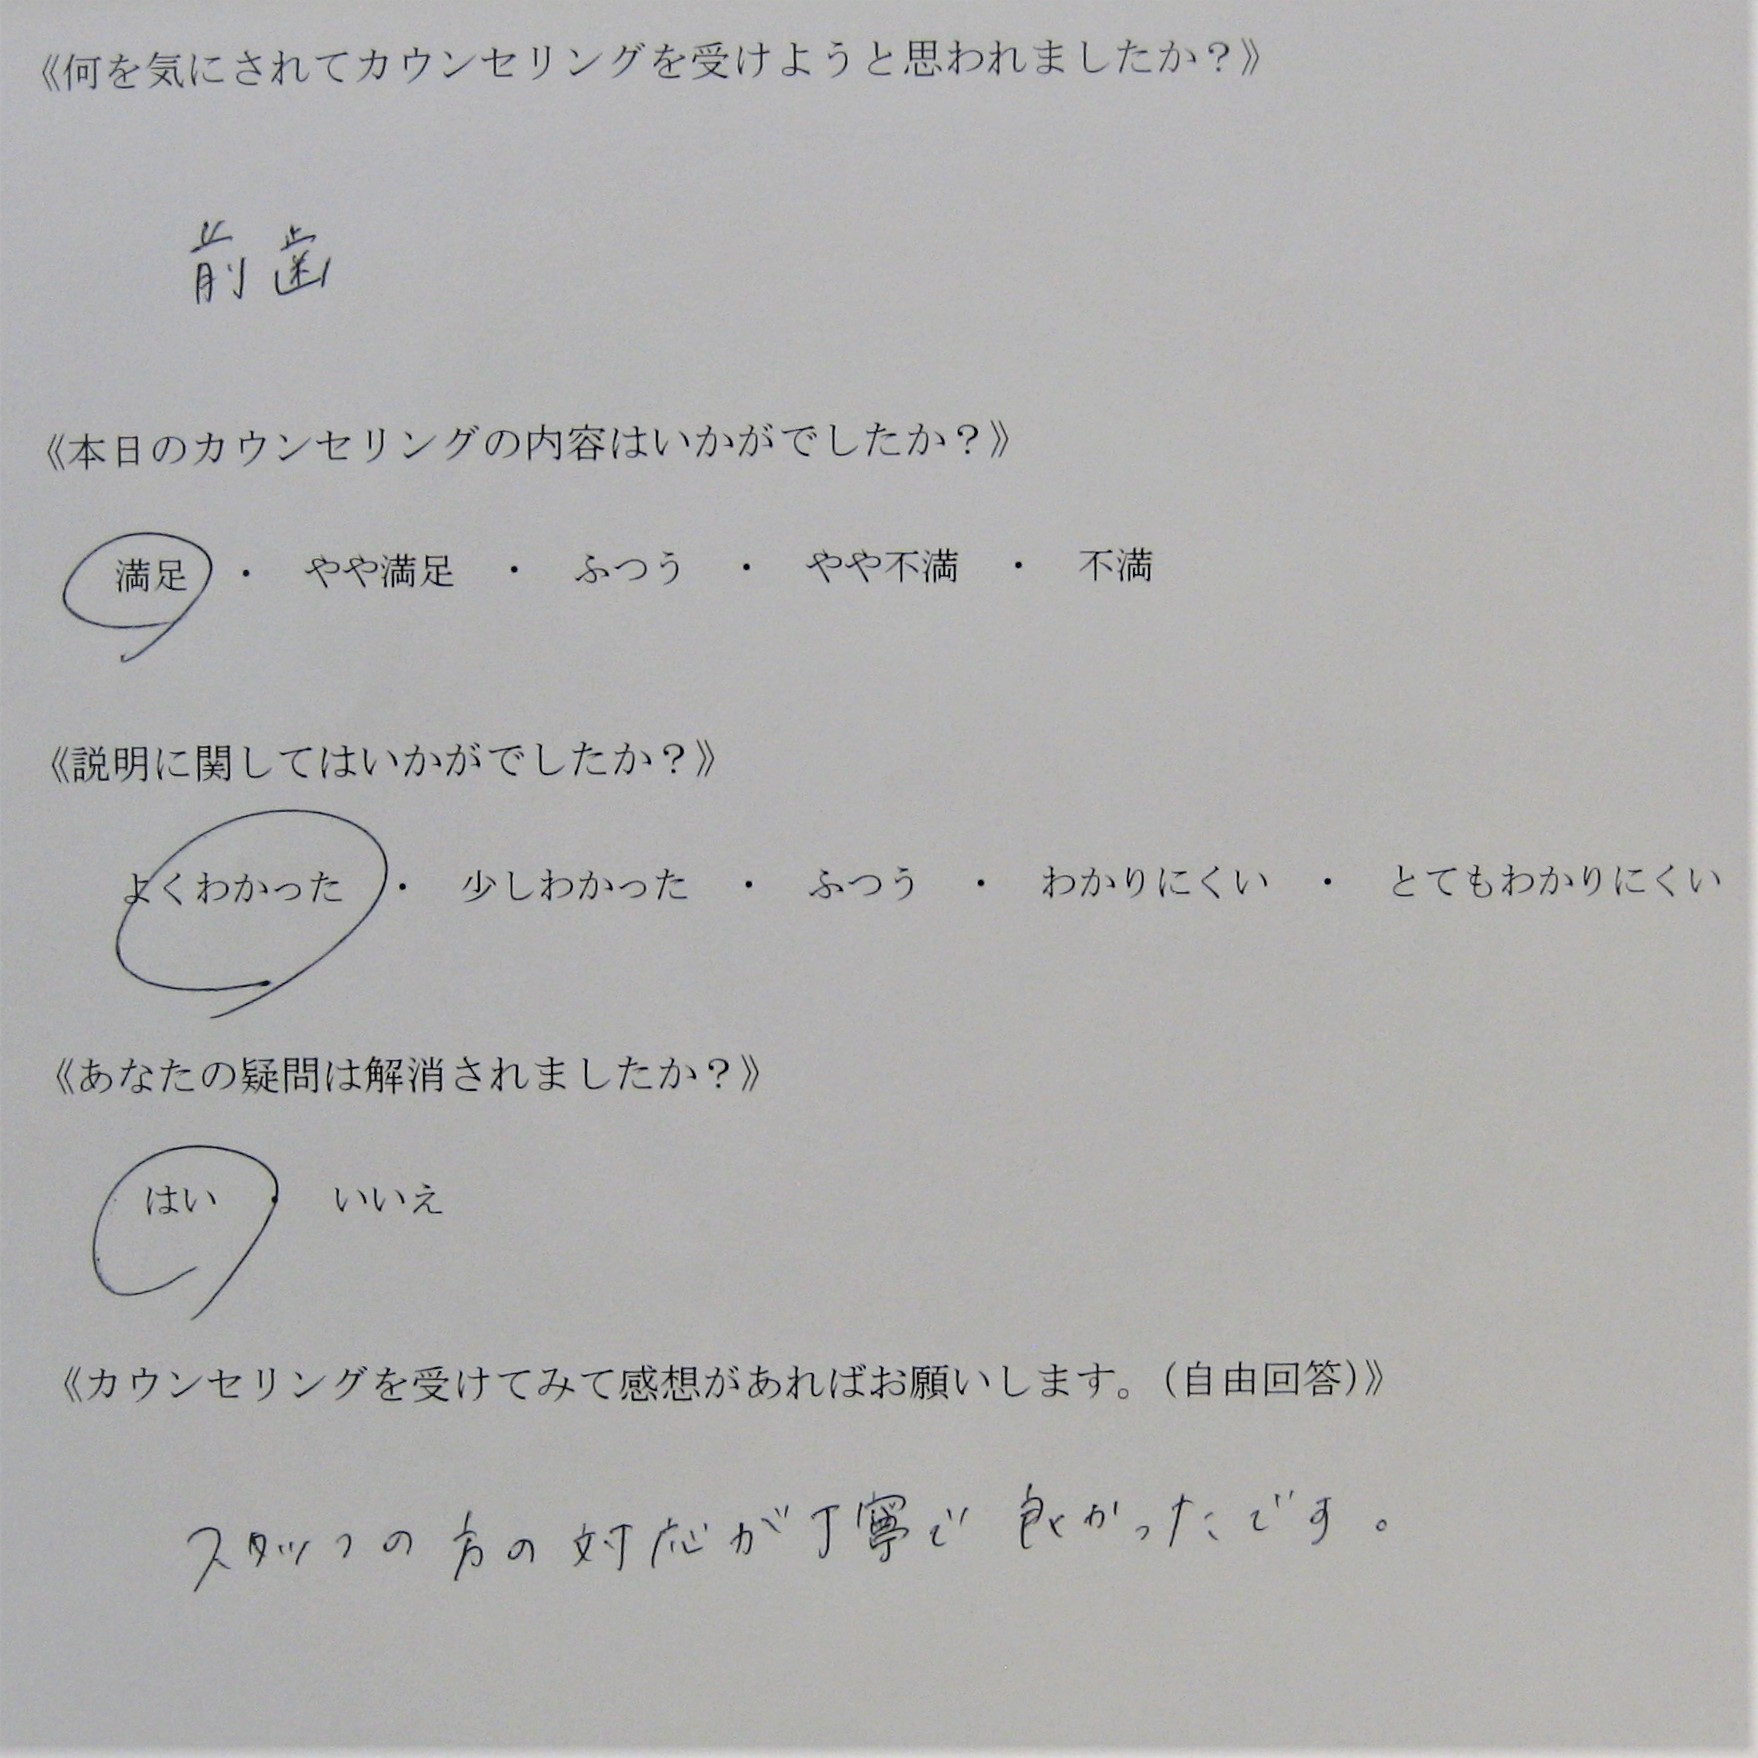 《何を気にされてカウンセリングを受けようと思われましたか？》
前歯
《本日のカウンセリングの内容はいかがでしたか？》
満足　・　やや満足　・　ふつう　・　やや不満　・　不満
《説明に関してはいかがでしたか？》
よくわかった　・　少しわかった　・　ふつう　・　わかりにくい　・　とてもわかりにくい
《あなたの疑問は解消されましたか？》
はい　・　いいえ
《カウンセリングを受けてみて感想があればお願いします。（自由回答）》
スタッフの方の対応が丁寧で良かったです。